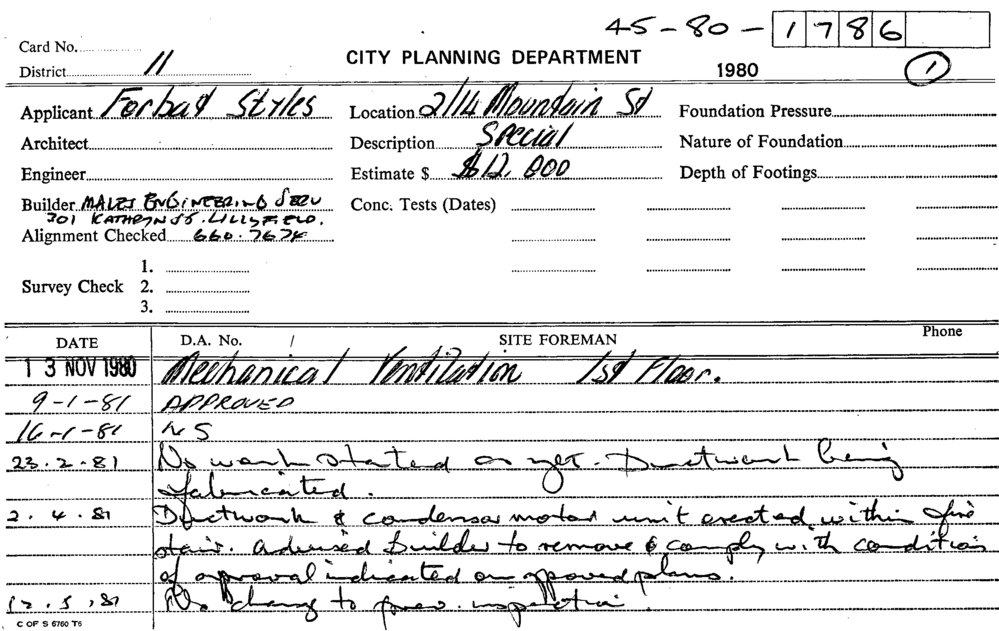 45-80- 1786
Card No.
District 11
CITY PLANNING DEPARTMENT
1980
1
Applicant Forbat Styles
Location 2/14 Mountain St
Foundation Pressure
Architect
Description Special
Nature of Foundation
Engineer
Estimate $ $12,000
Depth of Footings
Builder ENGINEERING SERV
301 ST. LILLYFIELD.
Conc. Tests (Dates)
Alignment Checked 660.7674
Survey Check
1.
2.
3.
DATE
D.A. No. /
SITE FOREMAN
Phone
13 NOV 1980 Mechanical Ventilation 1st Floor.
9-1-81 APPROVED
16-1-81 NS
23.2.81 No work started as yet. Ductwork being
fabricated.
2.4.81 Ductwork & condensor motor unit erected within fire
stair. Advised builder to remove & comply with condition
of approval indicated on approved plans.
12.5.81 No change to prev. inspection.
C OF S 6760 T6